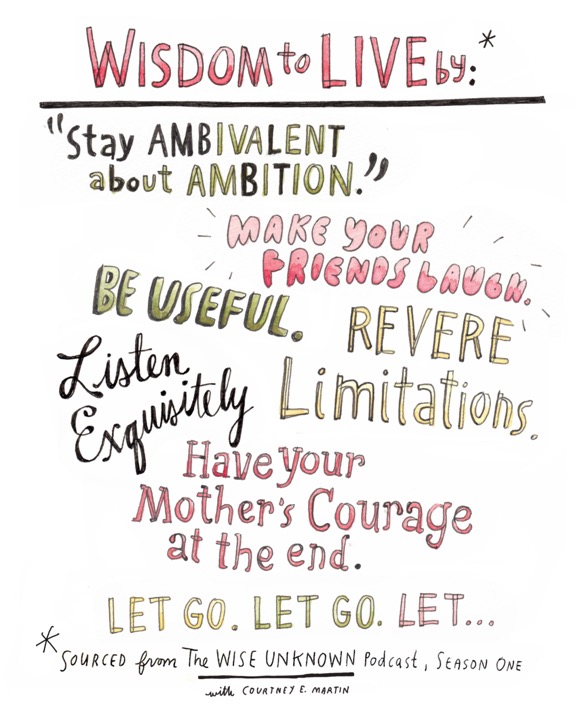 WISDOM to LIVE by:*
"Stay AMBIVALENT
about AMBITION."
MAKE YOUR
FRIENDS LAUGH.
BE USEFUL.
REVERE
Limitations.
Listen
Exquisitely
Have your
Mother's Courage
at the end.
LET GO. LET GO. LET...
*SOURCED from The WISE UNKNOWN Podcast, SEASON ONE
with COURTNEY E. MARTIN